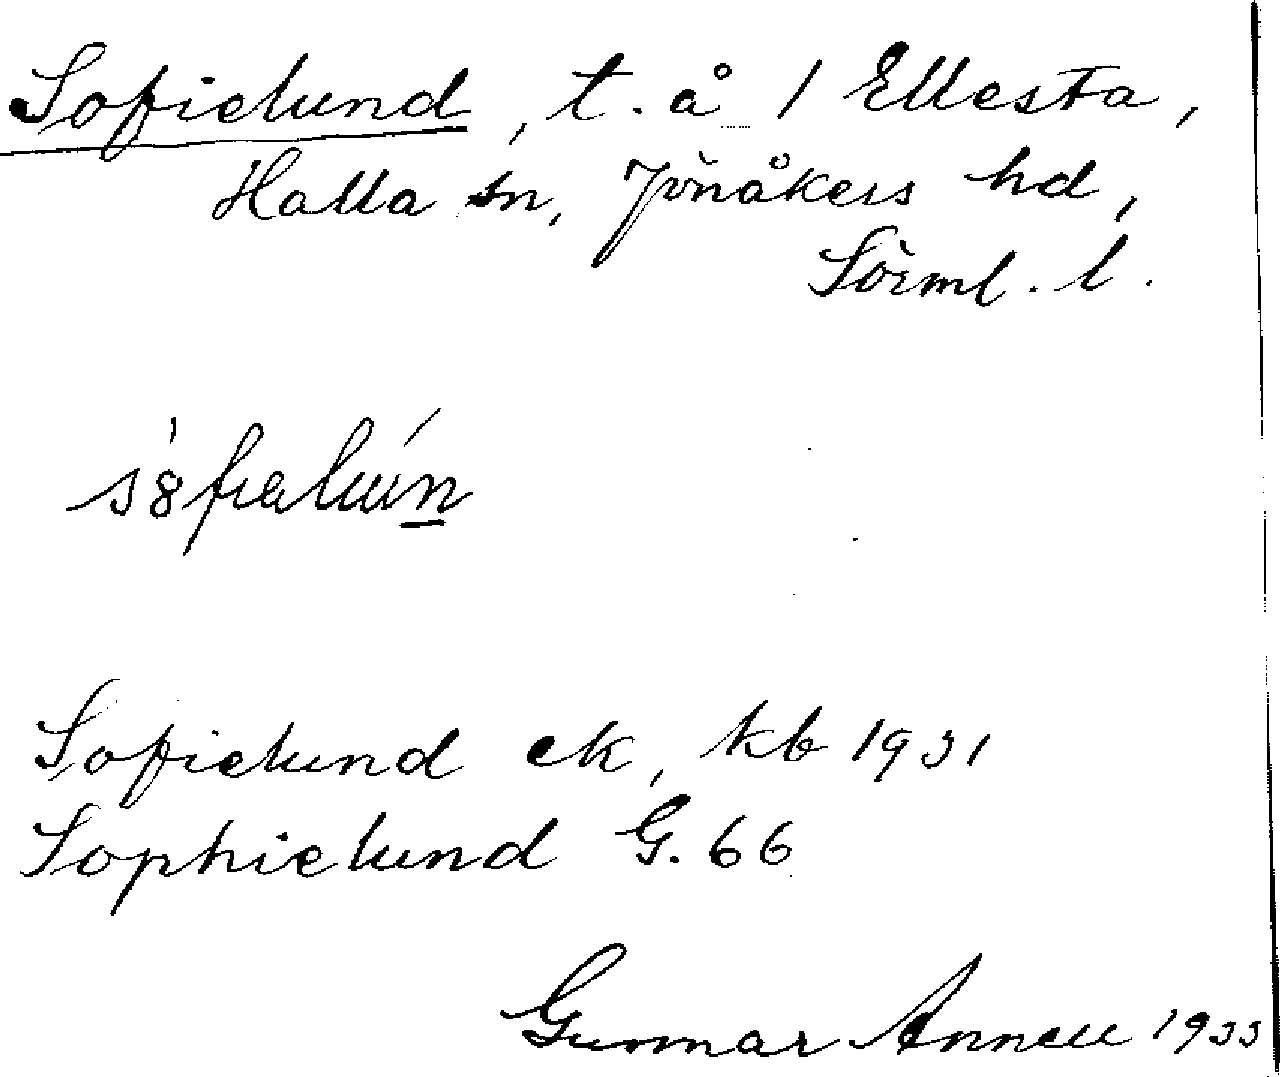 Sofielund, t. å 1 Ellesta,
Halla sn, Jönåkers hd,
Sörml. l.
Sofielund ek, kb 1931
Sophielund G. 66
Gunnar Annell 1933